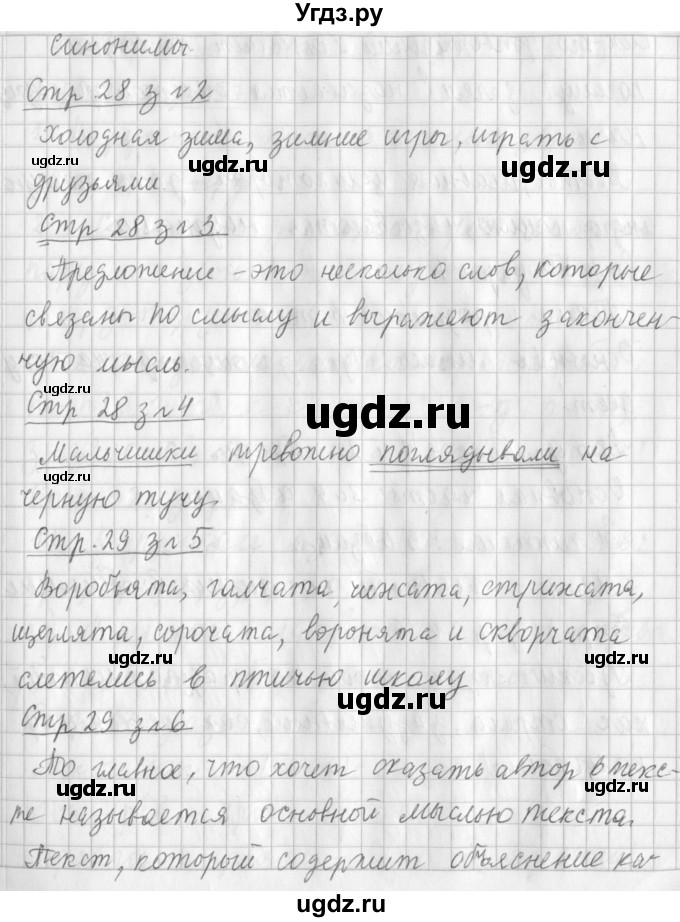 Угдз.ру
синонимы.
Стр 28 з №2
Холодная зима, зимние игры, играть с
ugdz.ru ugdz.ru ugdz.ru
друзьями.
ugdz.ru
Стр 28 з №3.
Предложение - это несколько слов, которые
связаны по смыслу и выражают закончен-
ную мысль.
ugdz.ru
Стр 28 з №4
ugdz.ru
Мальчишки тревожно поглядывали на
ugdz.ru
черную тучу.
Стр. 29 з №5
ugdz.ru
Воробьята, галчата, чижата, стрижата,
щеглята, сорочата, воронята и скворчата
ugdz.ru ugdz.ru
слетелись в птичью школу
ugdz.ru
Стр 29 з №6
ugdz.ru
То главное, что хочет сказать автор в текс-
ugdz.ru ugdz.ru
те называется основной мыслью текста.
Текст, который содержит объяснение ка-
ugdz.ru